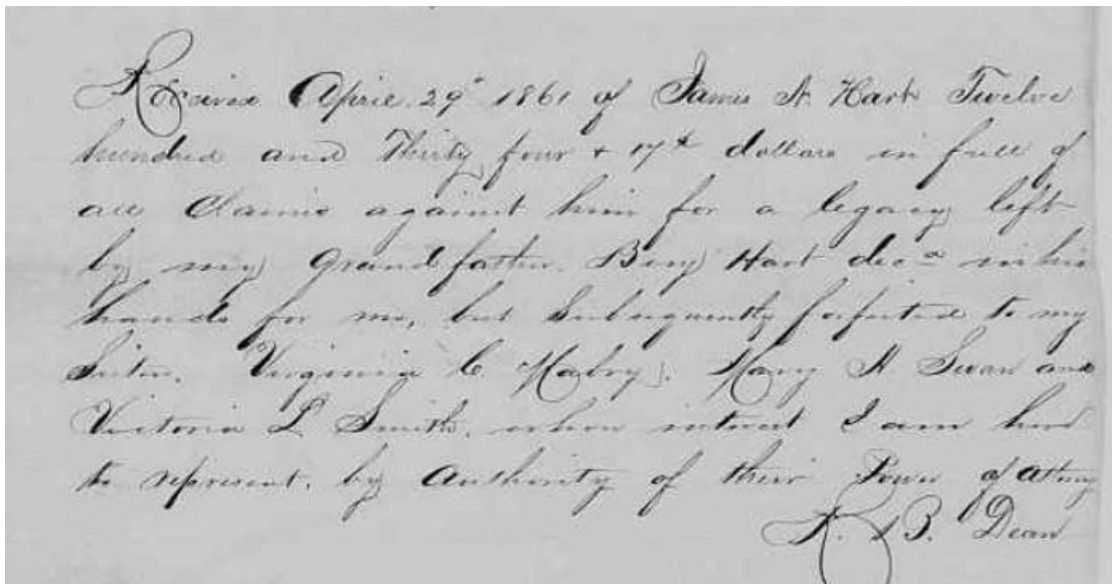 Received April 29th 1861 of James H. Hart Twelve
hundred and Thirty four & 17th dollars in full of
all Claims against him for a legacy left
by my Grand father. Benj Hart decd in his
hands for me, but Subsequently forfeited to my
Sisters. Virginia C. Mabry, Mary H. Swan and
Victoria L. Smith, whose interest I am here
to represent, by Authority of their Power of Attny
R. B. Dean